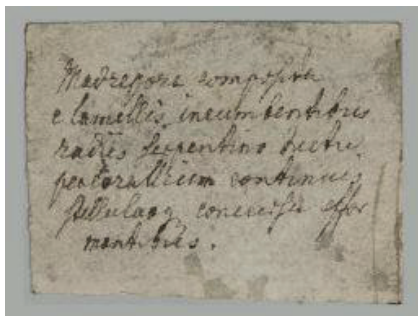 Madrepora composita
e lamellis incumbentibus
radiis serpentino ductu
per corallium continuis
stellulasq concursu effor
mantibus.